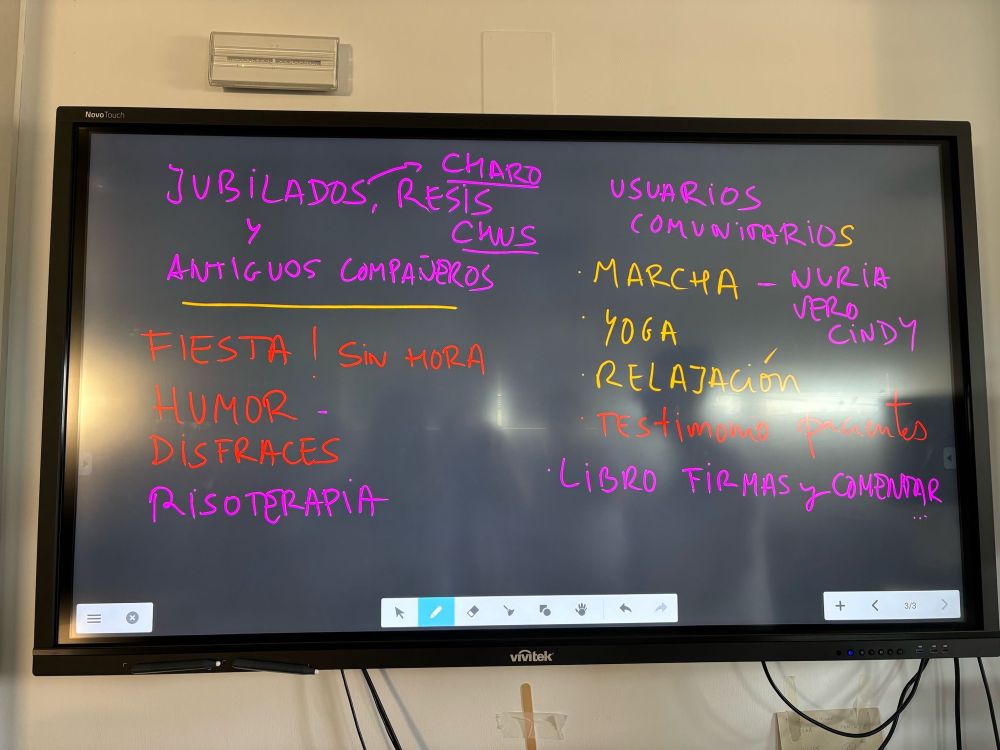 NovoTouch
CHARO
JUBILADOS, RESIS
Y
CHUS
ANTIGUOS COMPAÑEROS
FIESTA! SIN HORA
HUMOR -
DISFRACES
RISOTERAPIA
USUARIOS
COMUNITARIOS
· MARCHA - NURIA
VERO
CINDY
· YOGA
· RELAJACIÓN
· TESTIMONIO pacientes
· LIBRO FIRMAS y COMENTAR
...
3/3
vivitek